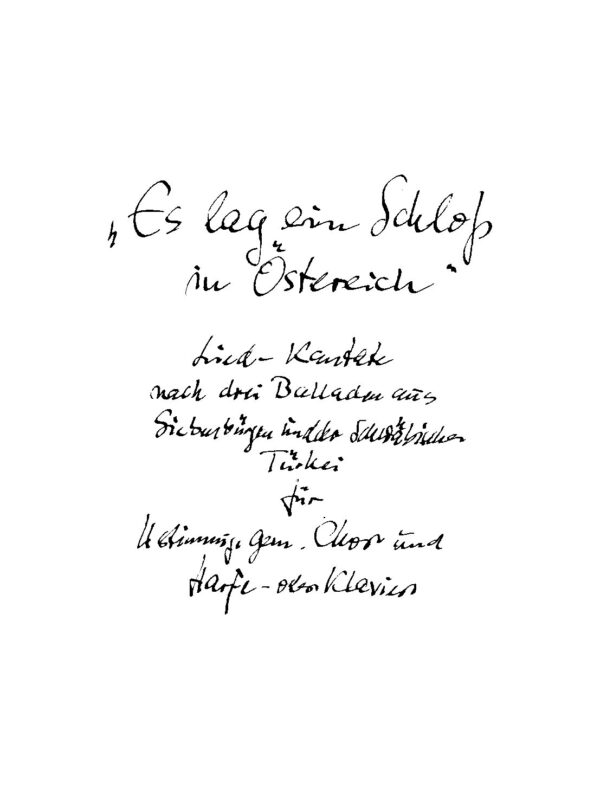 „Es lag ein Schloß
in Östereich“
Lied-Kantate
nach drei Balladen aus
Siebenbürgen und der Schwäbischen
Türkei
für
4stimmig. gem. Chor und
Harfe- oder Klavier